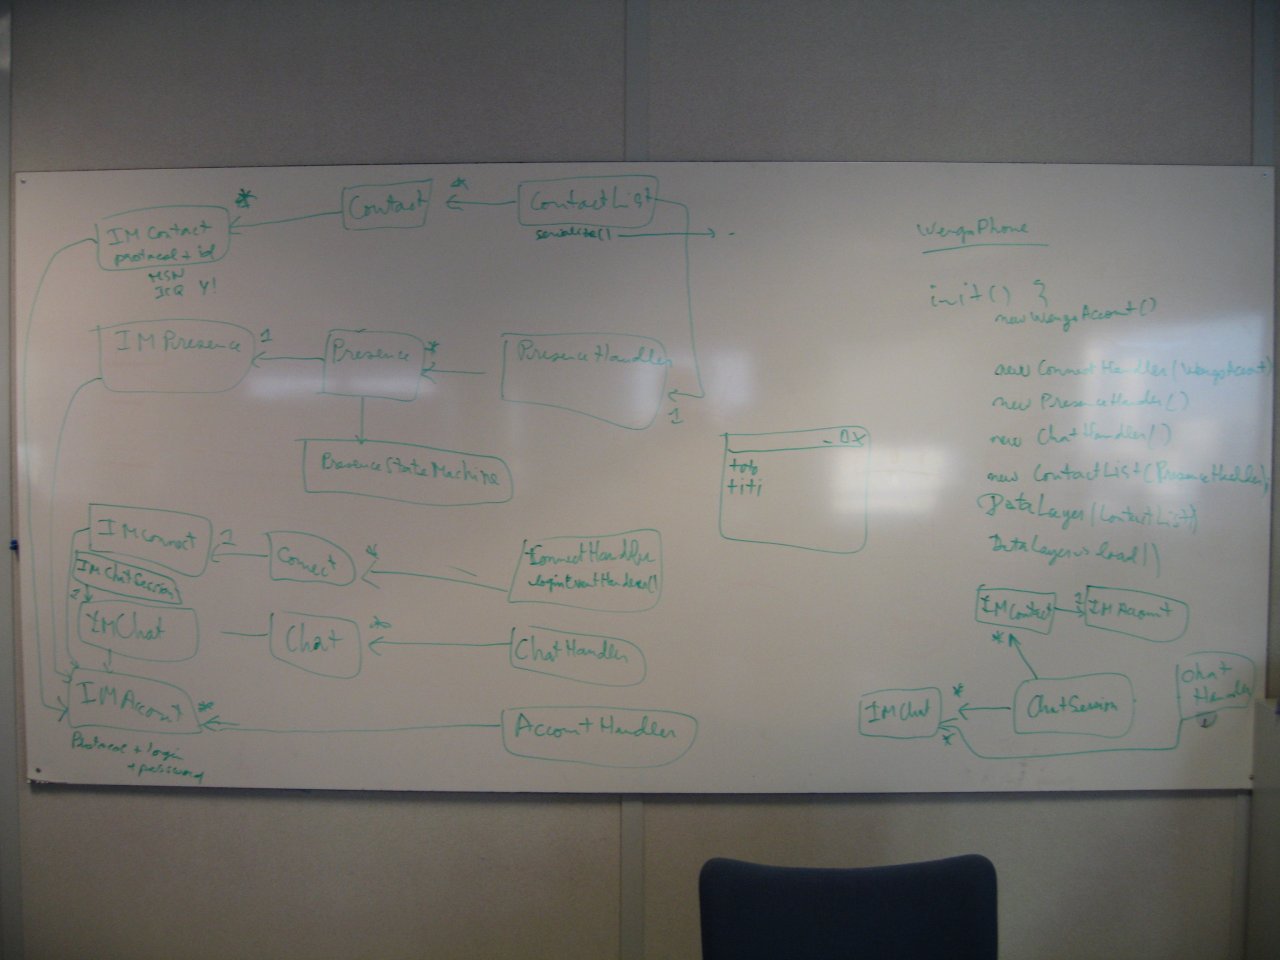 IMContact
protocol + id
MSN
ICQ Y!
*
Contact
*
ContactList
serialize()
IMPresence
1
Presence
*
PresenceHandler
1
PresenceStateMachine
IMConnect
1
Connect
*
ConnectHandler
loginEventHandler()
IMChatSession
1
IMChat
Chat
*
ChatHandler
IMAccount
*
Protocol + login
+ password
AccountHandler
_ O X
toto
titi
WengoPhone
init() {
new WengoAccount()
new ConnectHandler(WengoAccount)
new PresenceHander()
new ChatHandler()
new ContactList(PresenceHandler);
DataLayer(ContactList)
DataLayer load()
IMContact
1
IMAccount
*
IMChat
*
ChatSession
Chat
Handler
1
*